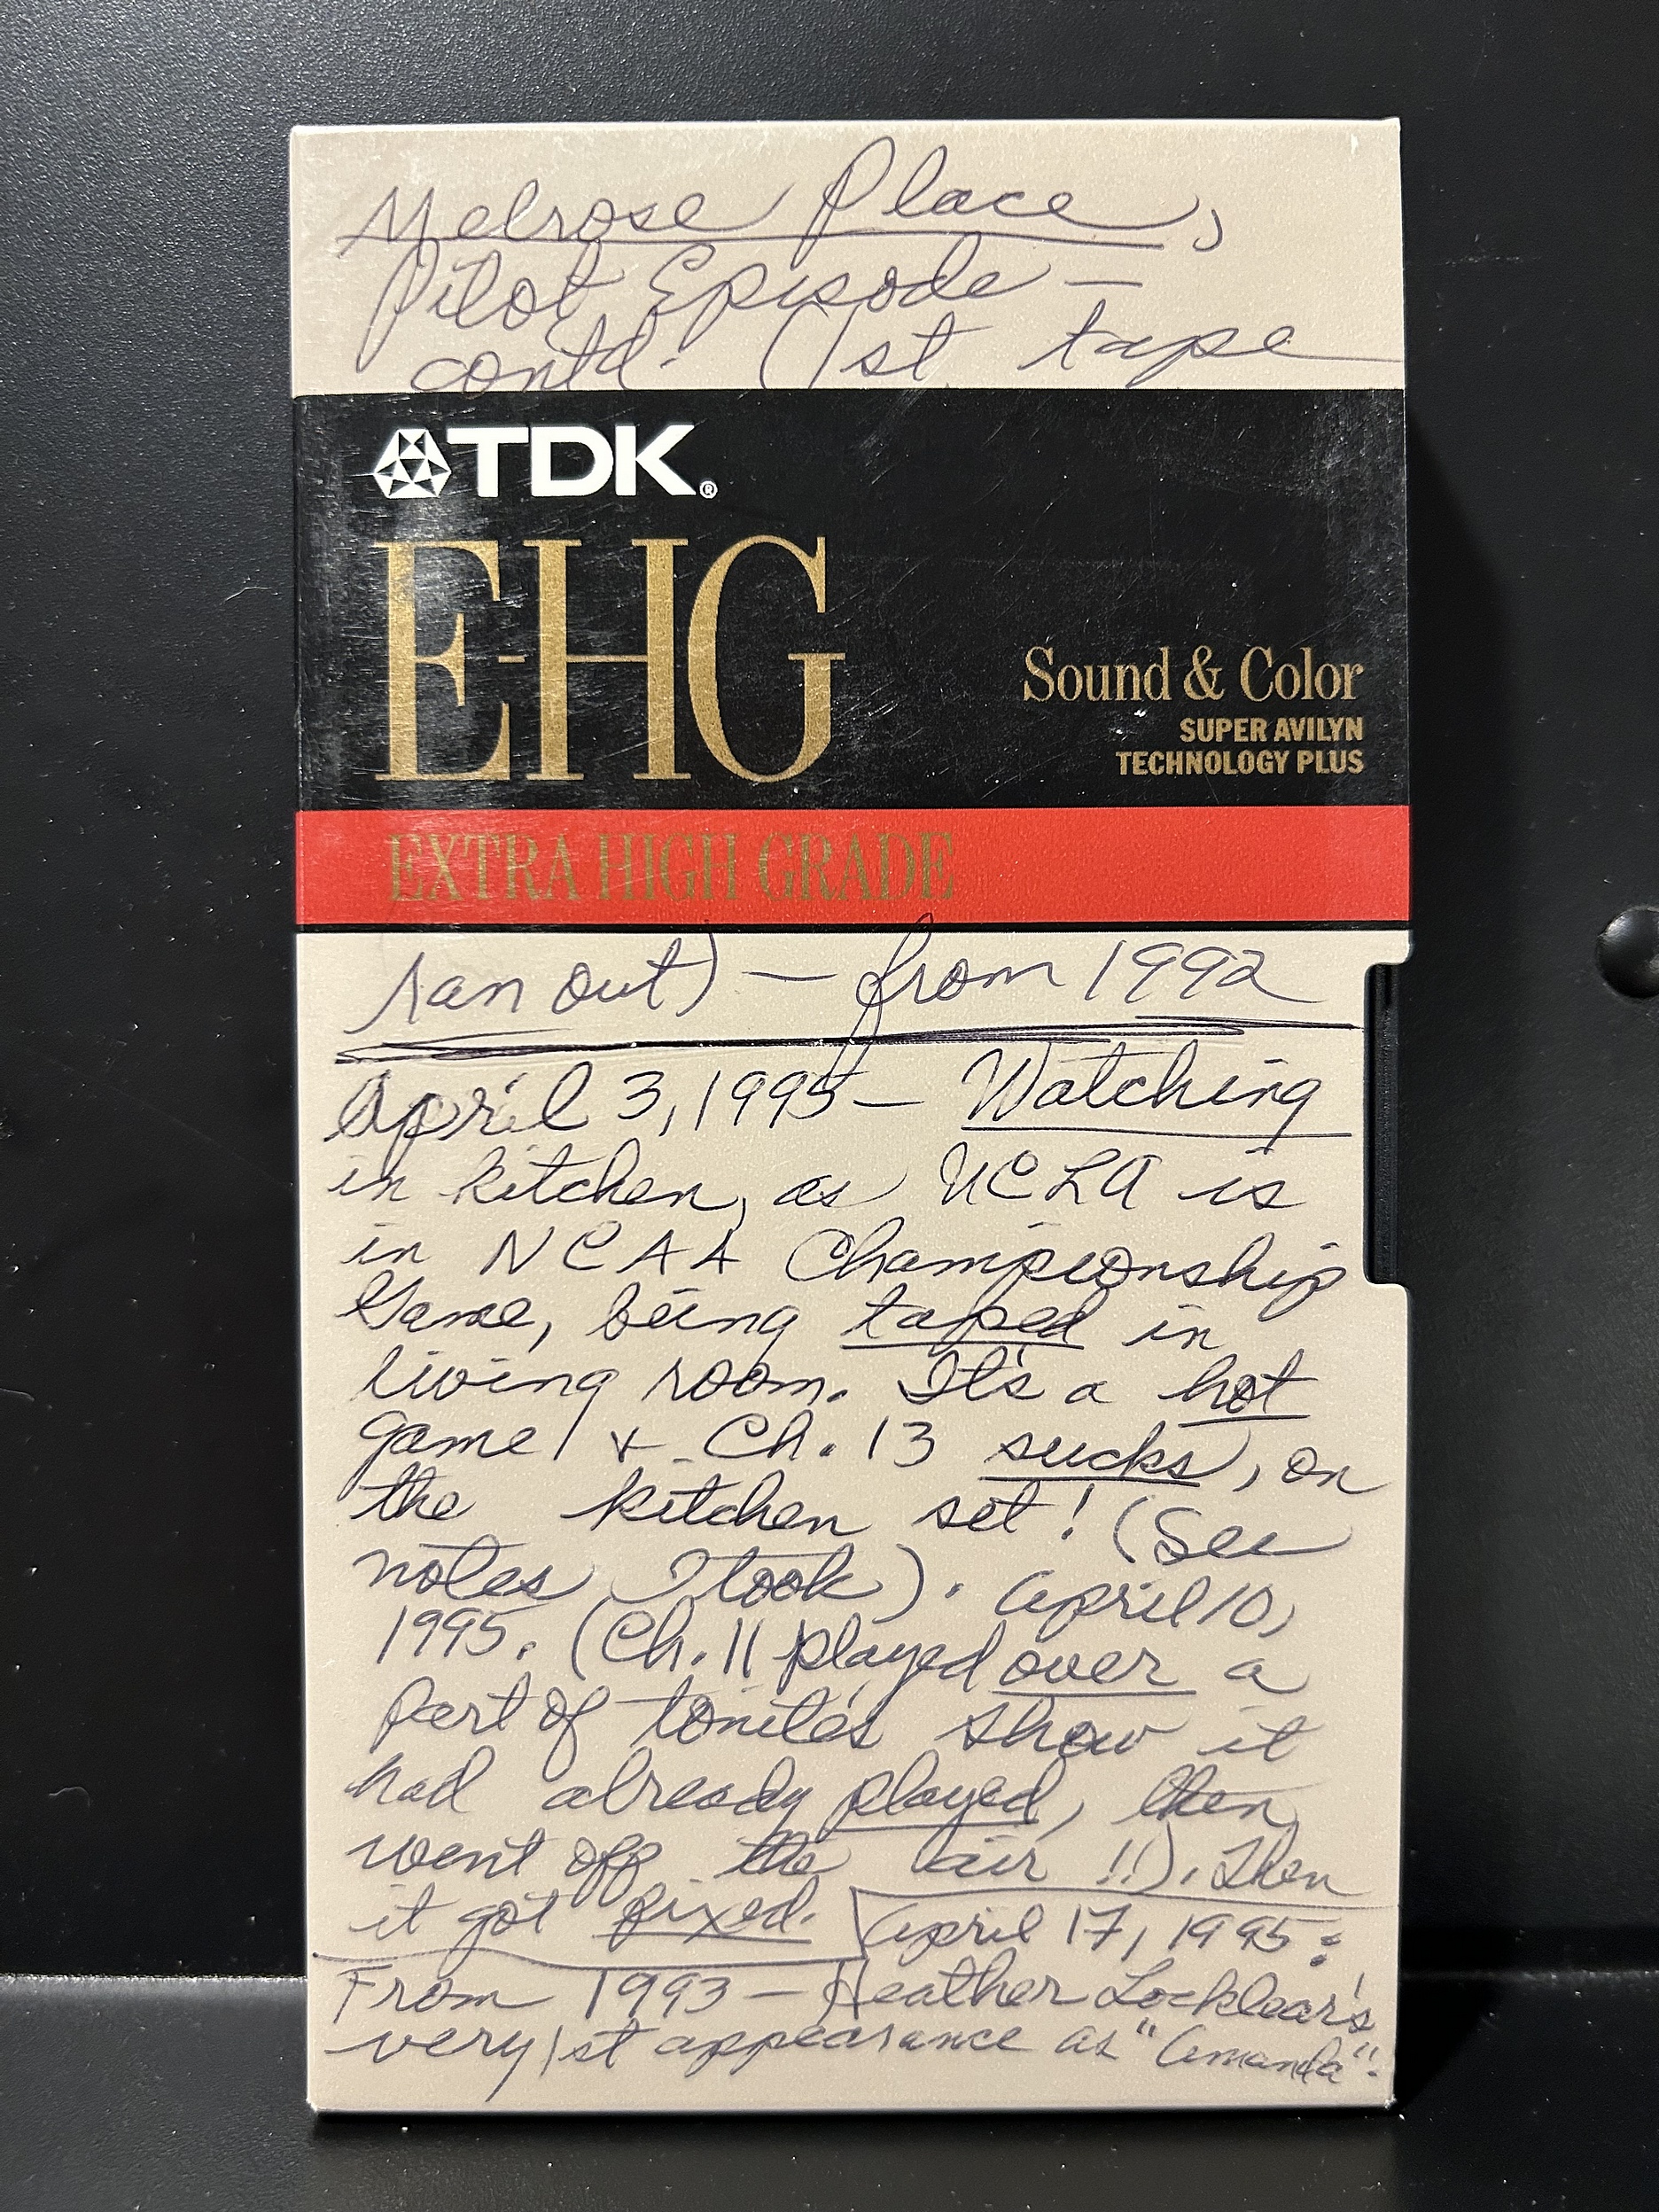 Melrose Place,
Pilot Episode —
contd. (1st tape
TDK®
E-HG
Sound & Color
SUPER AVILYN
TECHNOLOGY PLUS
EXTRA HIGH GRADE
ran out) — from 1992
April 3, 1995 — Watching
in kitchen, as UCLA is
in NCAA Championship
Game, being taped in
living room. It's a hot
game & Ch. 13 sucks, on
the kitchen set! (See
notes I took). April 10,
1995. (Ch. 11 played over a
part of tonite's show it
had already played, then
went off the air!!). Then
it got fixed. April 17, 1995:
From 1993 — Heather Locklear's
very 1st appearance as "Amanda".